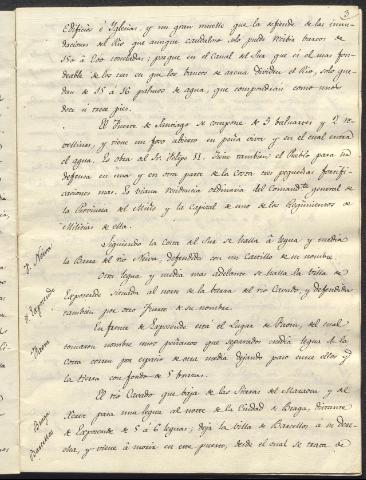 3
Edificios é Iglesias, y un gran muelle que la defiende de las inun-
daciones del Rio que aunque caudaloso solo puede recibir barcos de
150 à 200 toneladas; pues en el Canal del Sur que es el mas fon-
deable de los en que los bancos de arena dividen el Rio, solo que-
dan de 15 à 16 palmos de agua, que componen como unos
doce ù trece pies.
El Fuerte de Santiago se compone de 5 baluartes y 2 re-
vellines, y tiene un foso abierto en peña viva y en el cual entra
el agua. Es obra del Sr. Felipe II. Tiene tambien el Pueblo para su
defensa en una y en otra parte de la Costa tres pequeñas fortifi-
caciones mas. Es Viana residencia ordinaria del Comandte general de
la Provincia del Miño y la Capital de uno de los Regimientos de
Milicias de ella.
Siguiendo la Costa del Sur se halla à legua y media
R. Neiva
la Barra del rio Neiva, defendida con un Castillo de su nombre.
Otra legua y media mas adelante se halla la villa de
Esposende situada al norte de la barra del rio Cavado, y defendida
tambien por otro Fuerte de su nombre.
En frente de Esposende esta el Lugar de Faon, del cual
tomaron nombre unos peñascos que separados media legua de la
costa corren por espacio de otra media dejando paso entre ellos y
la tierra con fondo de 5 brazas.
El rio Cavado que baja de las Sierras del Marawn y del
Xerez para una legua al norte de la Ciudad de Braga, distante
Braga
de Esposende de 5 à 6 leguas; deja la villa de Barcellos à su dere-
Barcellos
cha, y viene à morir en este puerto, desde el cual se trata de